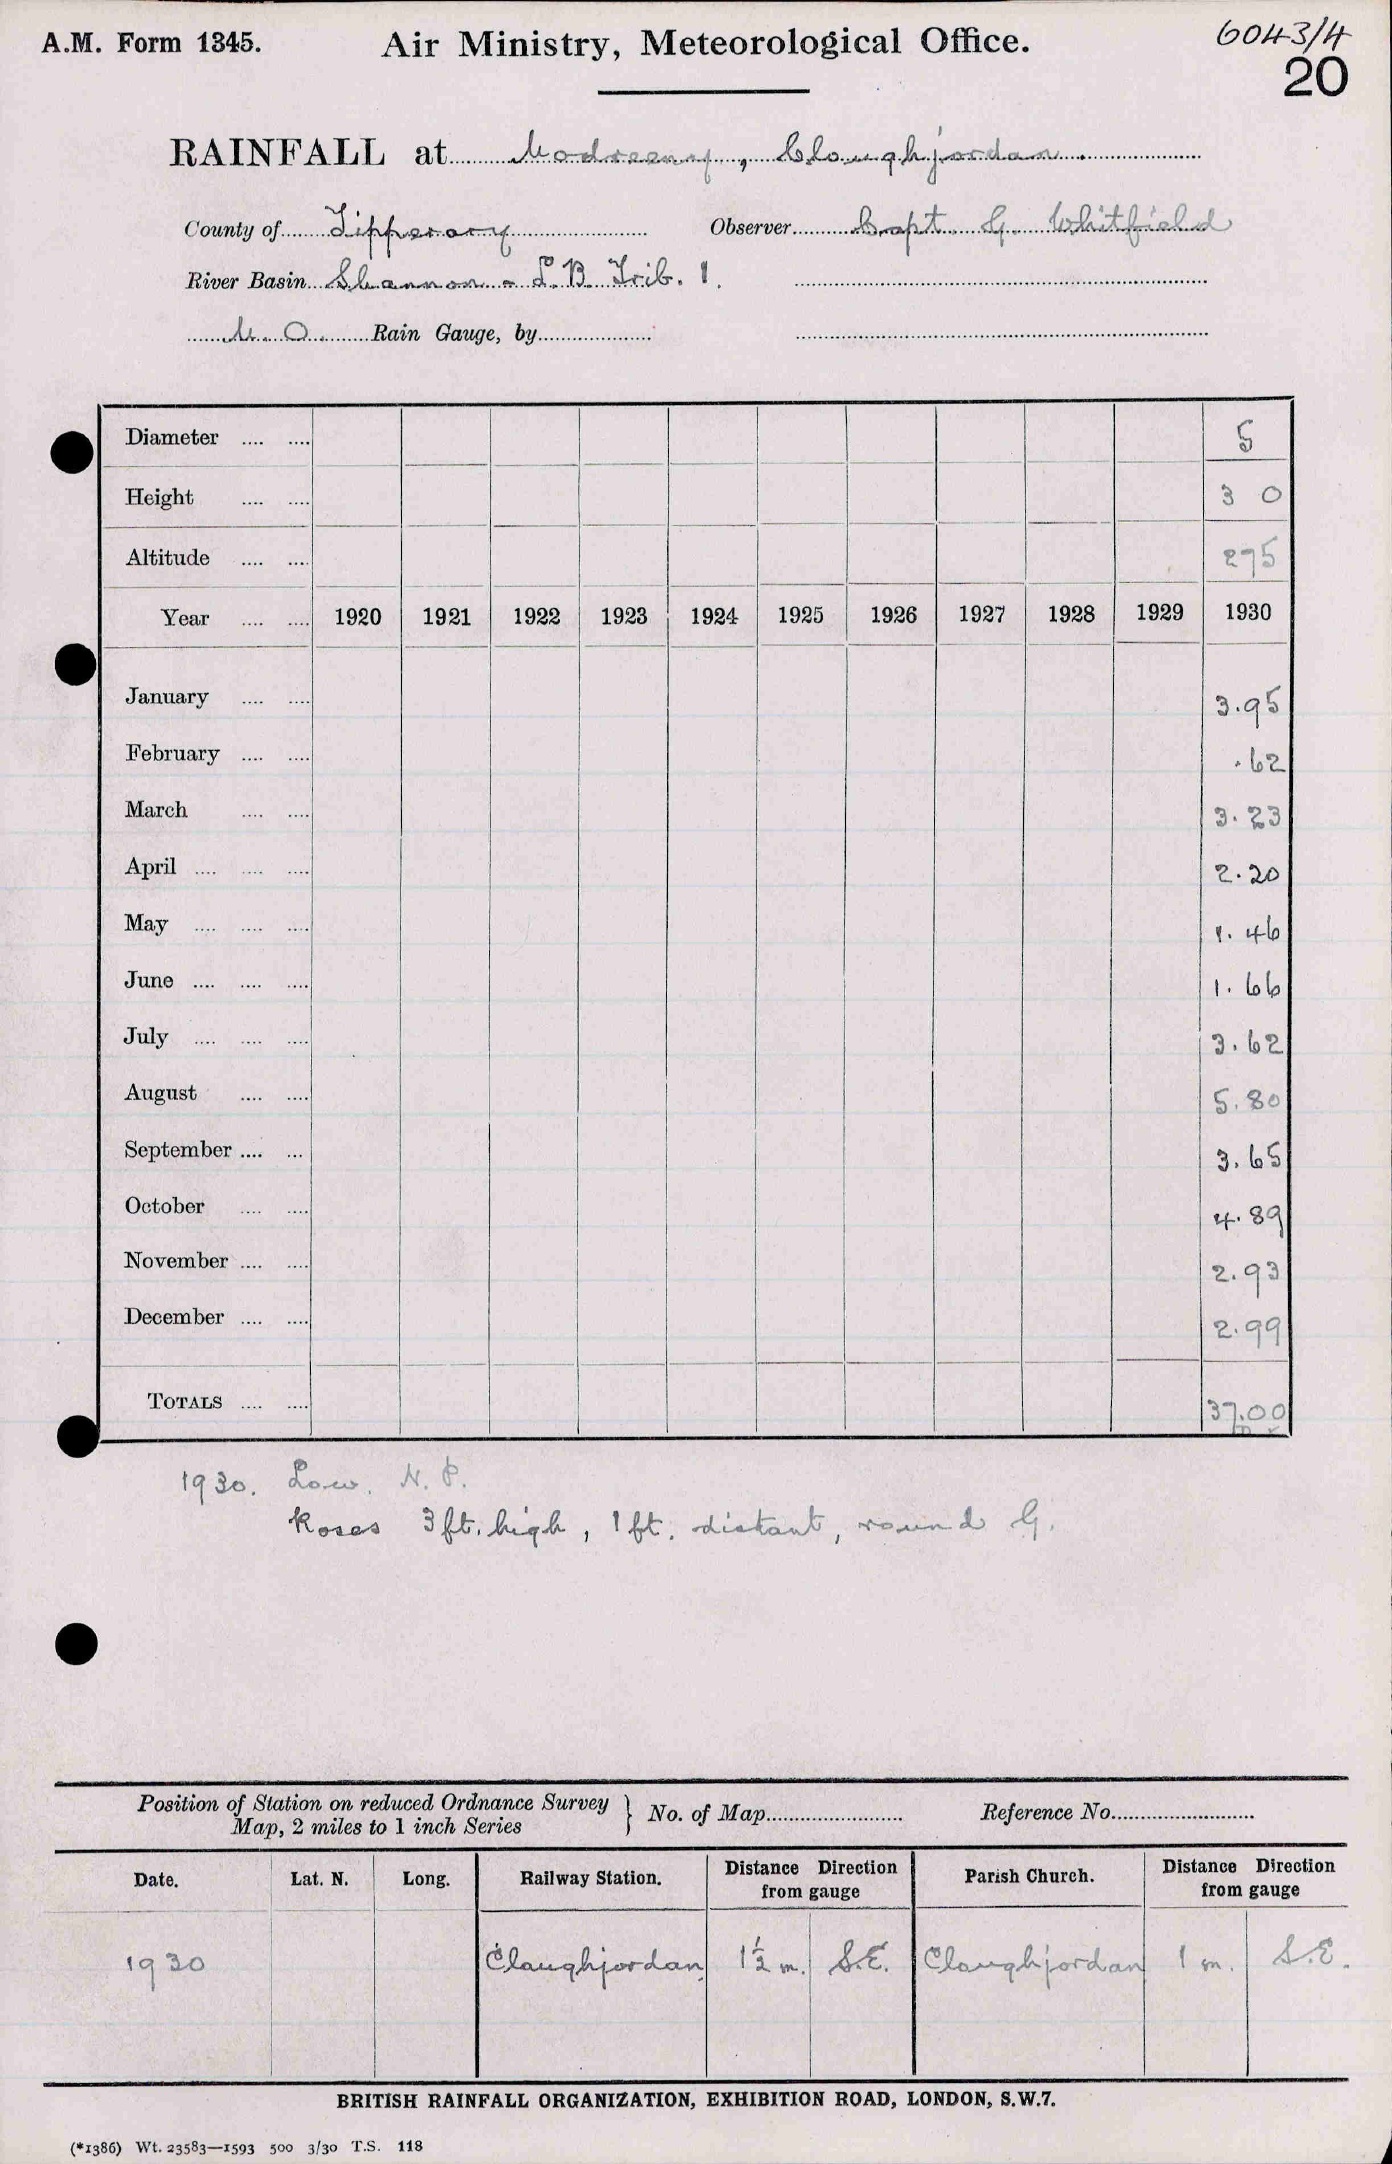 A.M. Form 1345. Air Ministry, Meteorological Office. 6043/4
20
RAINFALL at Modreeny, Cloughjordan.
County of Tipperary Observer Capt. G. Whitfield
River Basin Shannon - L.B. Trib. 1.
M.O. Rain Gauge, by
Diameter .... .... 5
Height .... .... 3 0
Altitude .... .... 275
Year .... .... 1920 1921 1922 1923 1924 1925 1926 1927 1928 1929 1930
January .... .... 3.95
February .... .... .62
March .... .... 3.23
April .... .... .... 2.20
May .... .... .... 1.46
June .... .... .... 1.66
July .... .... .... 3.62
August .... .... 5.80
September .... ... 3.65
October .... .... 4.89
November .... .... 2.93
December .... .... 2.99
TOTALS .... .... 37.00
1930. Low. N.P.
Roses 3ft. high, 1ft. distant, round G.
Position of Station on reduced Ordnance Survey
Map, 2 miles to 1 inch Series } No. of Map Reference No.
Date. Lat. N. Long. Railway Station. Distance Direction from gauge Parish Church. Distance Direction from gauge
1930 Cloughjordan 1½ m. S.E. Cloughjordan 1 m. S.E.
BRITISH RAINFALL ORGANIZATION, EXHIBITION ROAD, LONDON, S.W.7.
(*1386) Wt. 23583—1593 500 3/30 T.S. 118